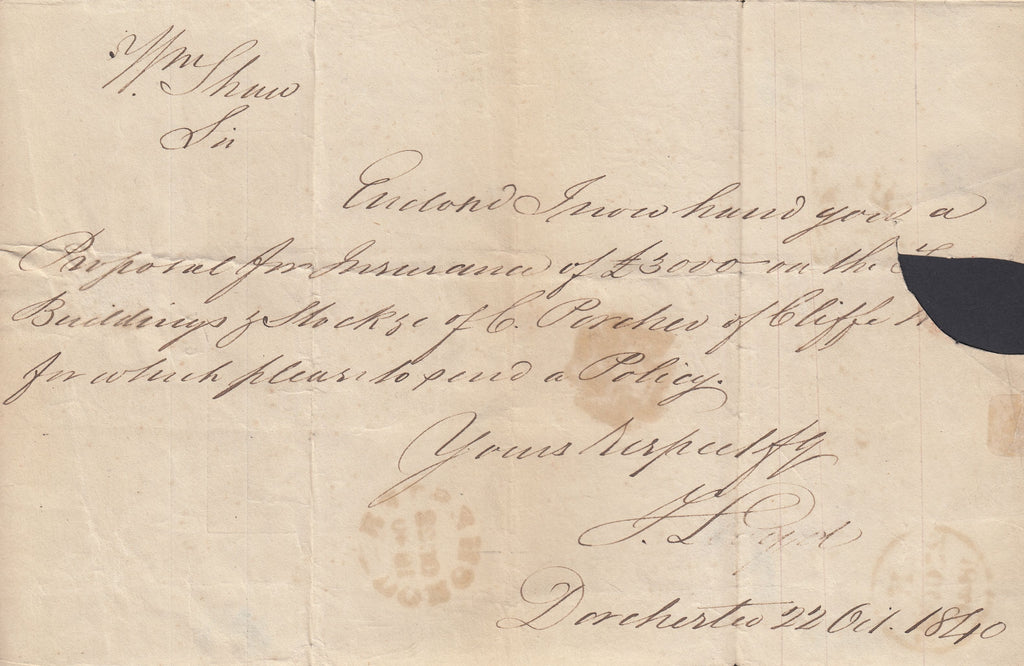 Wm Shaw
Sir
Enclosd I now hand you a
Proposal for Insurance of £3000 on the
Buildings & Stock &c of C. Porcher of Cliffe
for which please to send a Policy.
Yours respectfy
J. Lloyd
Dorchester 22 Oct. 1840